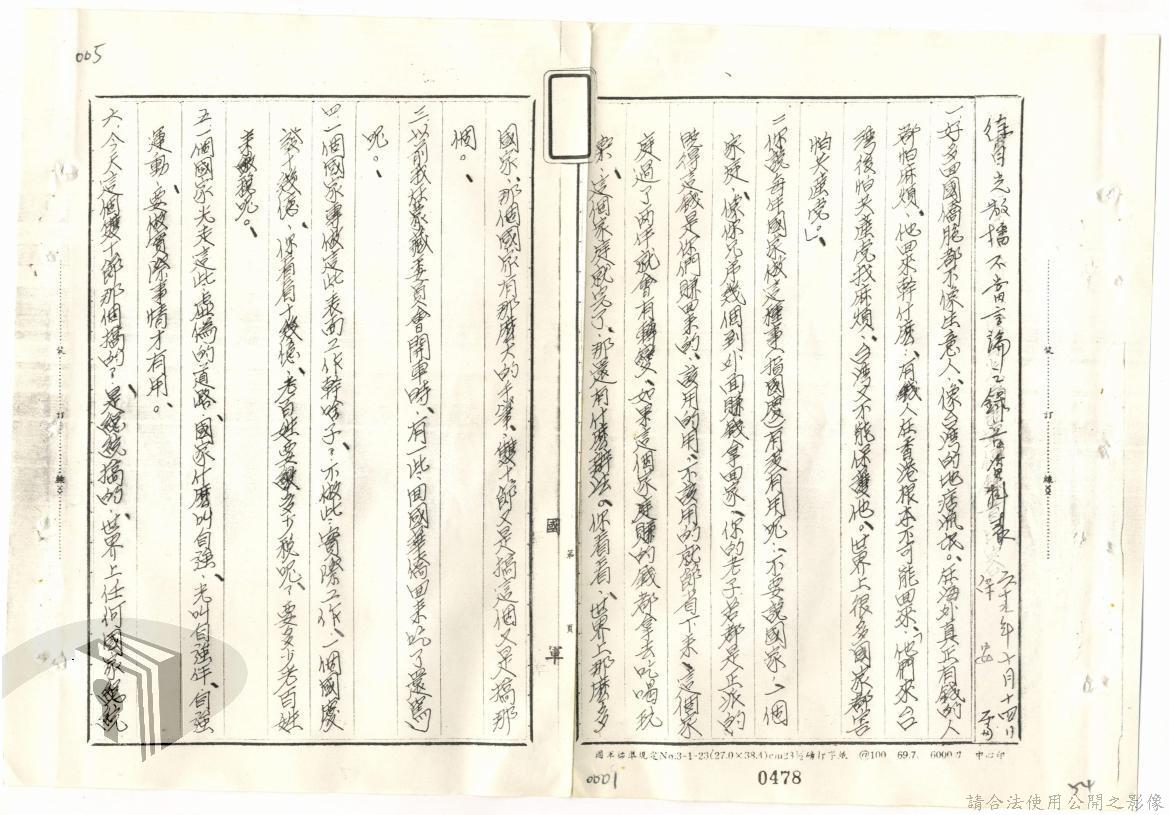 徐曾光散播不當言論之錄音資料表
六十九年十月十四日
保安
一好多回國僑胞都不像生意人、像台灣的地痞流氓。在海外真正有錢的人
都怕麻煩、他回來幹什麼、有錢人在香港根本不可能回來、「他們來台
灣後怕共產黨找麻煩、台灣又不能保護他。世界上很多國家都害
怕共產黨。」
二你說每年國家做這種事(指國慶)有麥有用呢、不要說國家、一個
家庭、像你兄弟幾個到外面賺錢拿回家、你的老子若都是正派的
曉得這錢是你們賺回來的、該用的用、不該用的就節省下來、這個家
庭過了兩年就會有轉變、如果這個家庭賺的錢都拿去吃喝玩
樂、這個家庭就完了、那還有什麼辦法。你看看、世界上那麼多
國家、那個國家有那麼大的手筆、雙十節又是搞這個又是搞那
個。
三以前我在蒙藏委員會開車時、有一些回國華僑回來吃了還罵
呢。
四一個國家專做這些表面工作幹啥子?不做些實際工作、一個國慶
花十幾億、你看看十幾億、老百姓要繳多少稅呢?要多少老百姓
來繳稅呢。
五一個國家光走這些虛偽的道路、國家什麼叫自強、光叫自強年、自強
運動、要做實際事情才有用。
六、今天這個雙十節那個搞的?是總統搞的、世界上任何國家總統
國軍
第 頁
裝 訂 線
裝 訂 線
國軍標準規定No.3-1-23(27.0×38.4)cm23½磅打字紙 @100 69.7. 6000刀 中心印
0478
0001
005
54
請合法使用公開之影像